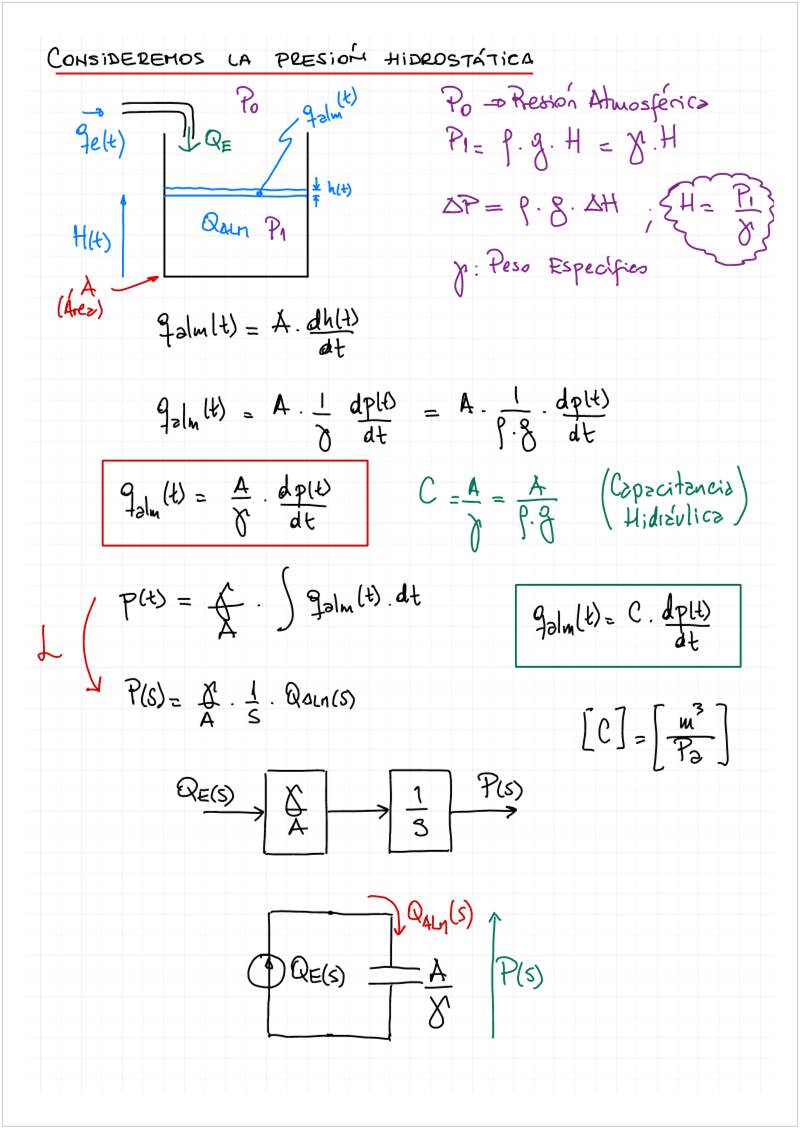 CONSIDEREMOS LA PRESIÓN HIDROSTÁTICA
qe(t)
QE
P0
qalm(t)
h(t)
H(t)
QALM P1
A
(Área)
P0 → Presión Atmosférica
P1 = ρ.g.H = γ.H
ΔP = ρ.g.ΔH ; H = P1/γ
γ: Peso Específico
qalm(t) = A . dh(t)/dt
qalm(t) = A . 1/γ dp(t)/dt = A . 1/ρ.g . dp(t)/dt
qalm(t) = A/γ . dp(t)/dt
C = A/γ = A/ρ.g (Capacitancia Hidráulica)
p(t) = γ/A . ∫ qalm(t).dt
qalm(t) = C . dp(t)/dt
L
P(s) = γ/A . 1/s . QALM(s)
[C] = [m³/Pa]
QE(s) γ/A 1/s P(s)
QALM(s)
QE(s) A/γ P(s)